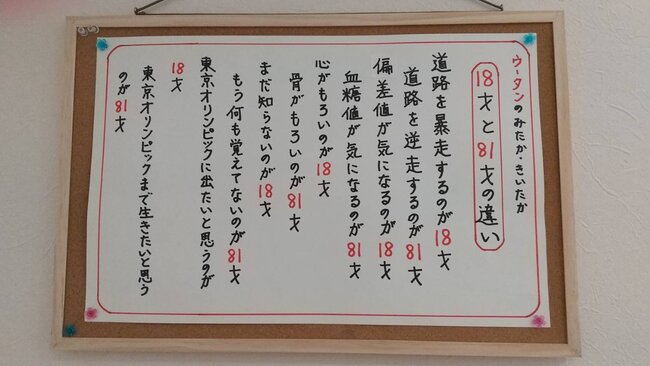 ウータンのみたか・きいたか
18才と81才の違い
道路を暴走するのが18才
道路を逆走するのが81才
偏差値が気になるのが18才
血糖値が気になるのが81才
心がもろいのが18才
骨がもろいのが81才
まだ知らないのが18才
もう何も覚えてないのが81才
東京オリンピックに出たいと思うのが
18才
東京オリンピックまで生きたいと思う
のが81才